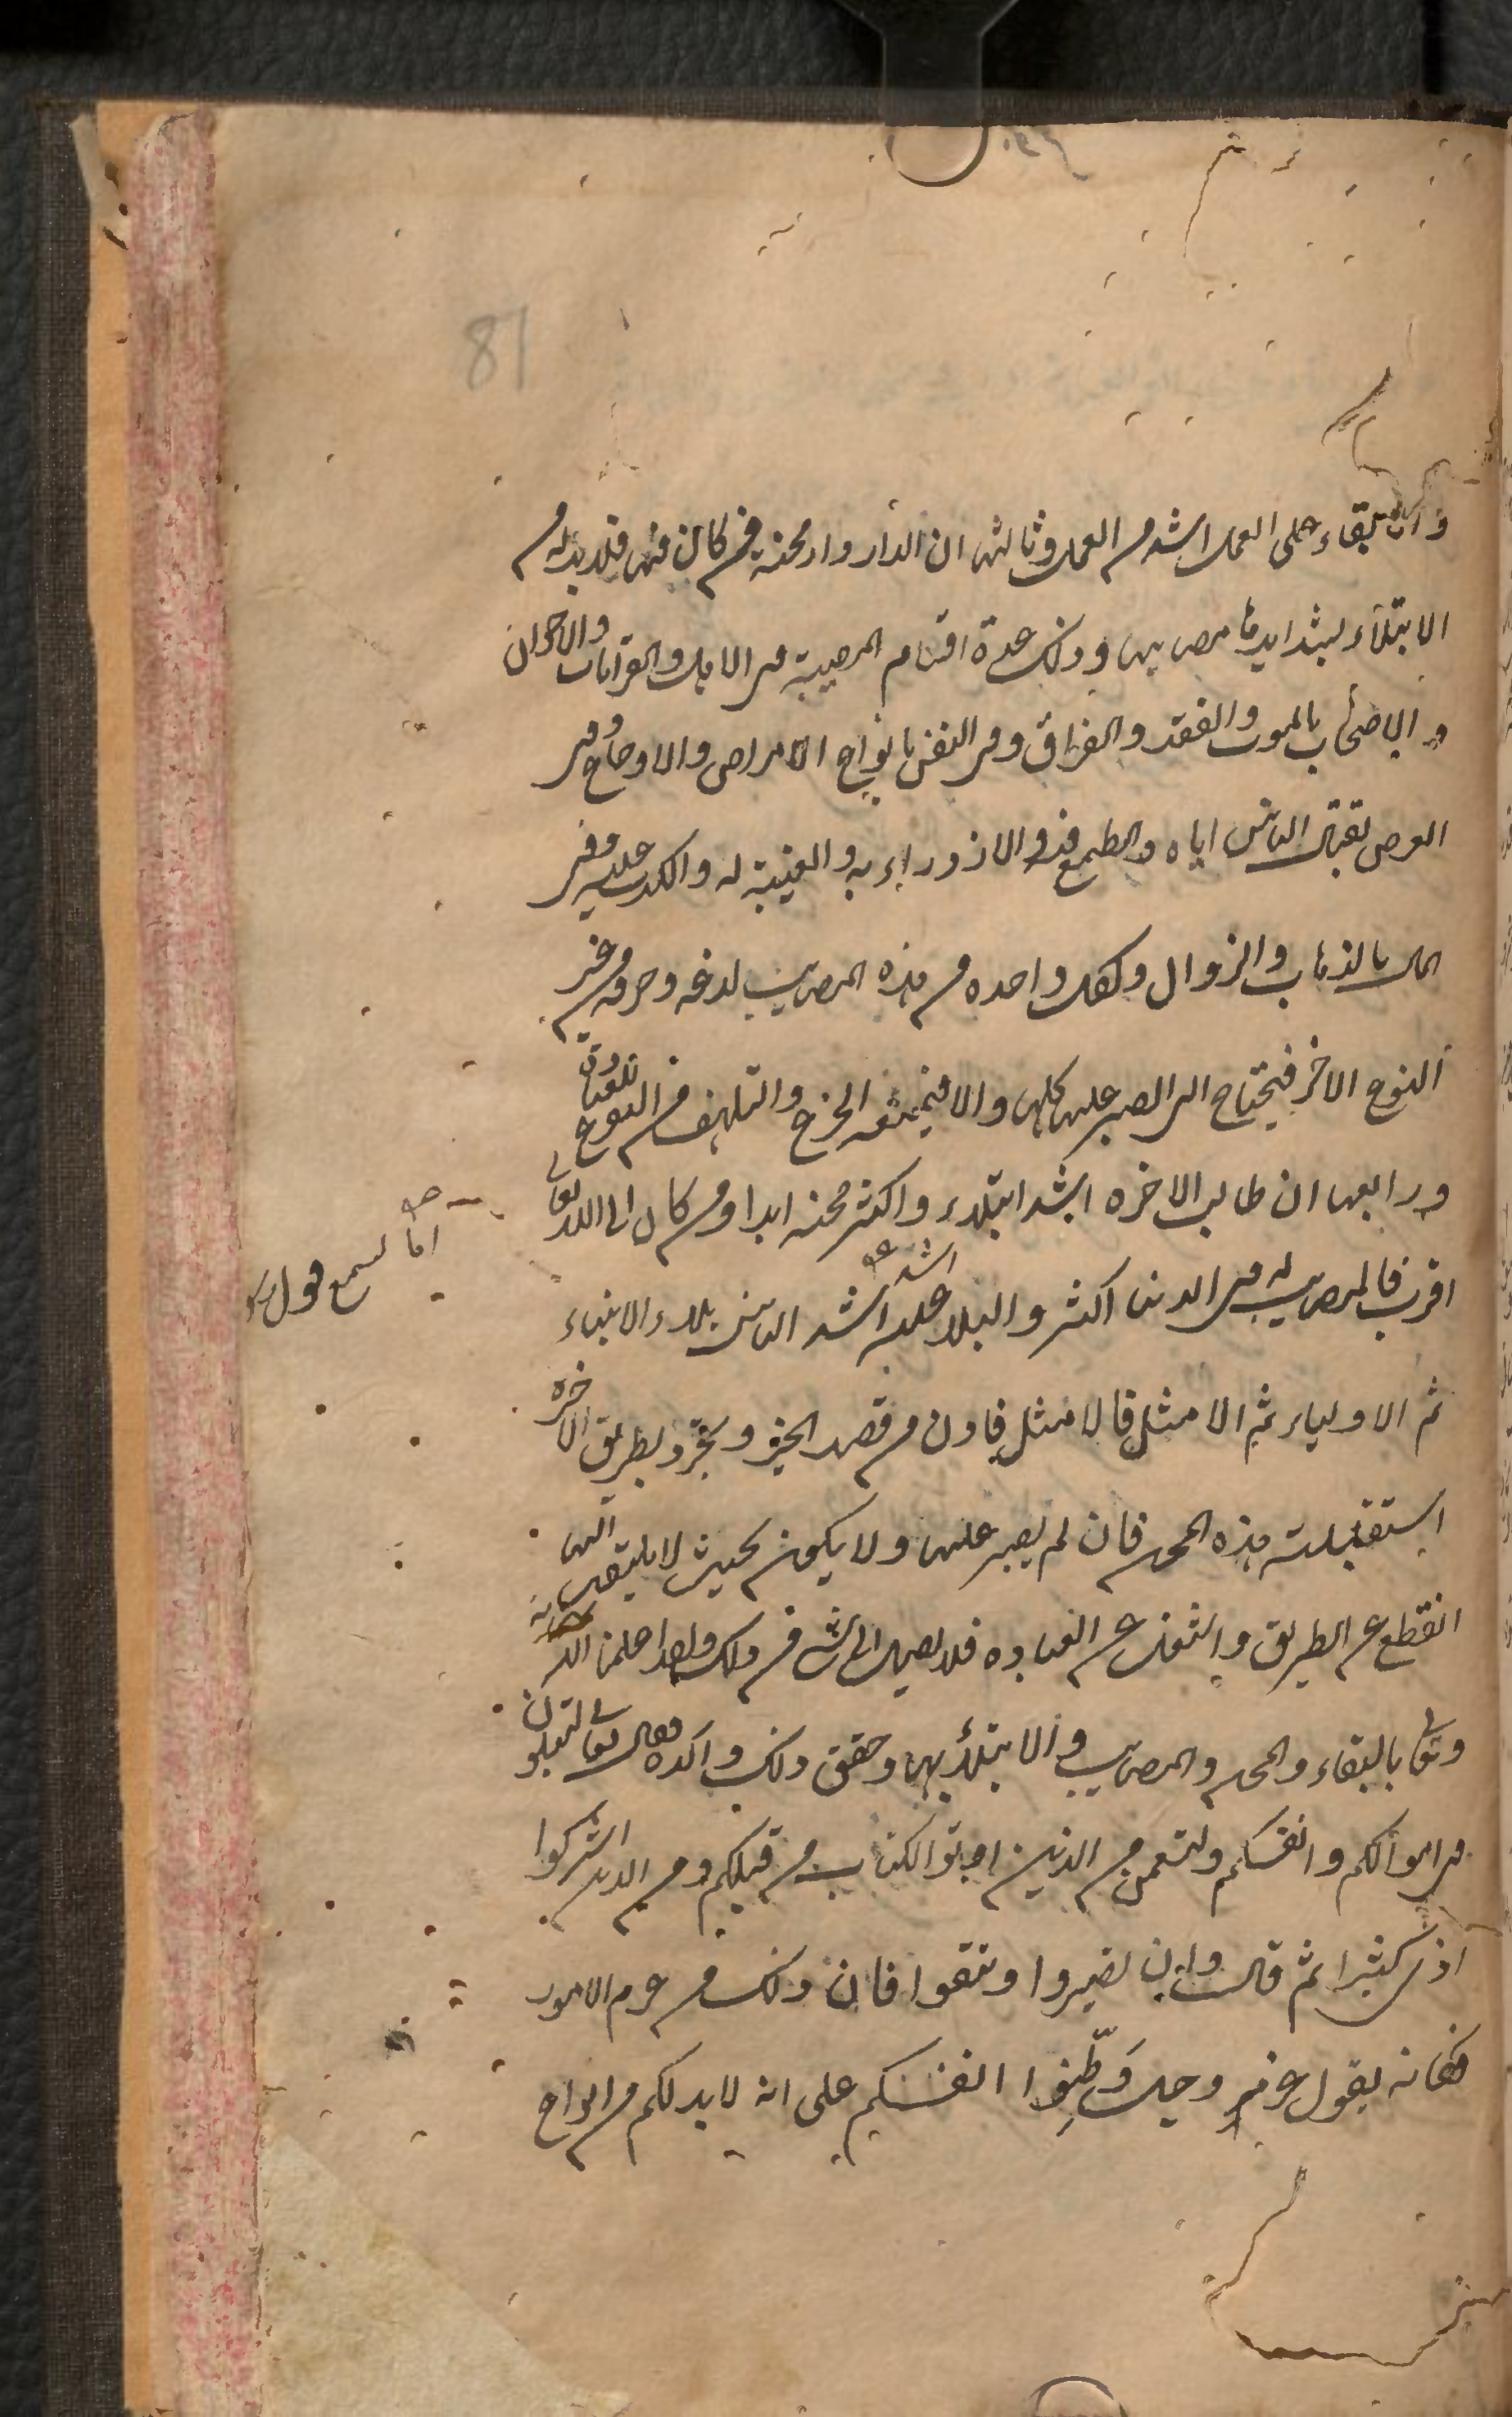 81
وان البقاء على العمل اشد من العمل وثالثها ان الدار دار محنة فمن كان فيها فلا بد له من
الابتلاء بشدايدها ومصايبها وذلك عدة اقسام المصيبة فى الاهل والقرابات والاخوان
والاصحاب بالموت والفقد والفراق وفى النفس بانواع الامراض والاوجاع وفى
العرض بقتال الناس اياه والطمع فيه والازدراء به والغيبة له والكذب عليه وفى
المال بالذهاب والزوال ولكل واحده من هذه المصايب لدغه وحرقه من غير
النوع الاخر فيحتاج الى الصبر عليها كلها والا فيمنعه الجزع والتلهف من التفرغ للعبادة
ورابعها ان طالب الاخره اشد ابتلاء واكثر محنه ابدا ومن كان الى الله تعالى
اقرب فالمصايب له فى الدنيا اكثر والبلاء عليه اشد اشد الناس بلاء الانبياء
اما تسمع قول
ثم الاولياء ثم الامثل فالامثل فاذن من قصد الخير وتجرد لطريق الاخره
استقبلته هذه المحن فان لم يصبر عليها ولا يكون بحيث لا يلتفت اليها
انقطع عن الطريق واشتغل عن العباده فلا يصل الى شى من ذلك ولقد اعلمنا الله سبحانه
وتعالى بالبقاء والمحن والمصايب والابتلاء بها وحقق ذلك واكده فقال تعالى لتبلون
فى اموالكم وانفسكم ولتسمعن من الذين اوتوا الكتاب من قبلكم ومن الذين اشركوا
اذى كثيرا ثم قال وان تصبروا وتتقوا فان ذلك من عزم الامور
فكانه يقول عز وجل وَطِّنوا انفسكم على انه لا بد لكم من انواع